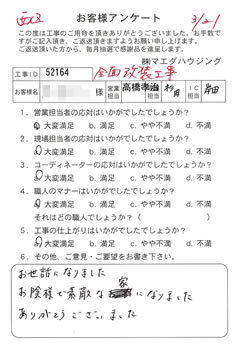 西区 お客様アンケート 3/21
この度は工事のご用命を頂きありがとうございました。お手数で
すがご記入頂き、ご返送頂きますようお願い申し上げます。
ご返送頂いた方から、毎月抽選で感謝品を進呈します。
㈱マエダハウジング
工事ID 52164 全面改装工事
お客様名 様 営業担当 高橋孝治 担当 杉月 IC担当
1．営業担当者の応対はいかがでしたでしょうか？
a. 大変満足 b. 満足 c. やや不満 d. 不満
2．現場担当者の応対はいかがでしたでしょうか？
a. 大変満足 b. 満足 c. やや不満 d. 不満
3．コーディネーターの応対はいかがでしたでしょうか？
a. 大変満足 b. 満足 c. やや不満 d. 不満
4．職人のマナーはいかがでしたでしょうか？
a. 大変満足 b. 満足 c. やや不満 d. 不満
それはどの職人でしょうか？（ ）
5．工事の仕上がりはいかがでしたでしょうか？
a. 大変満足 b. 満足 c. やや不満 d. 不満
6．その他、ご意見・ご要望をお書き下さい。
お世話になりました
お陰様で素敵な家になりました
ありがとうございました